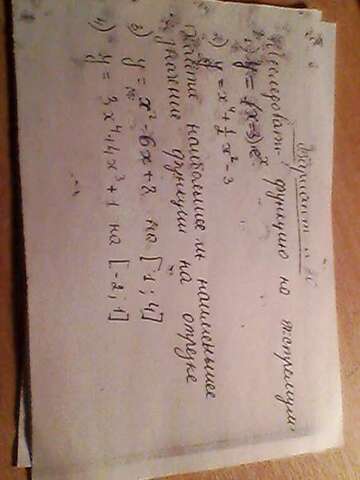 Вариант
Исследовать функцию на экстремум
1) y = (x-3)eˣ
2) y = x⁴ + ½ x² - 3
Найти наибольшее и наименьшее
значение функции на отрезке
3) y = x² - 6x + 8 на [1; 4]
4) y = 3x⁴ + 4x³ + 1 на [-2; 1]